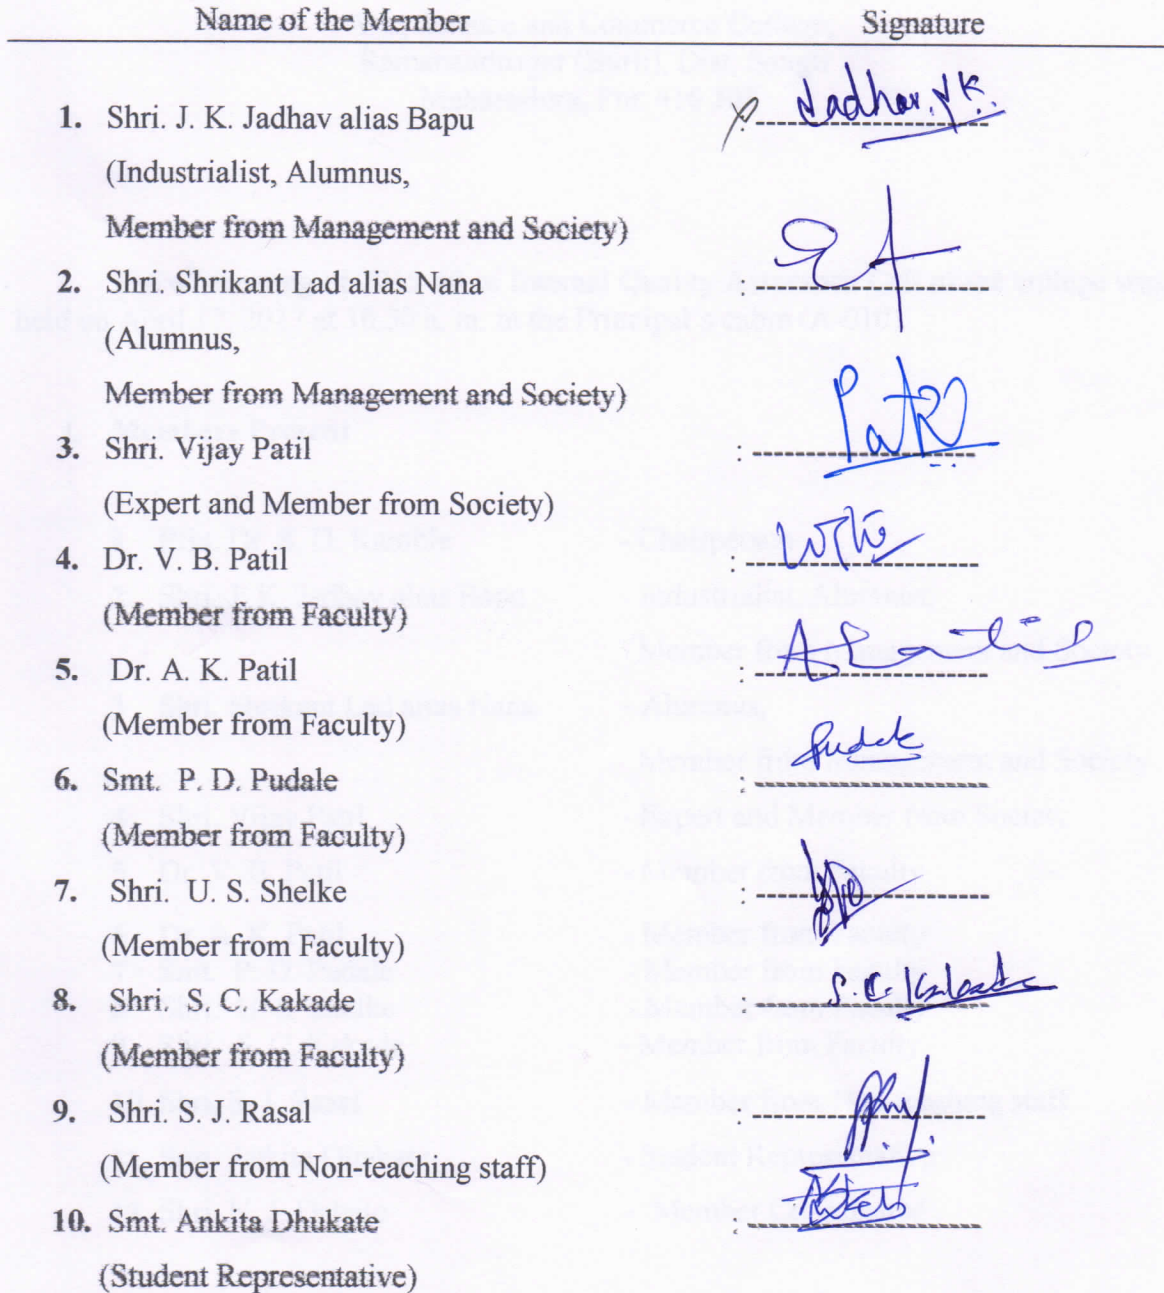 Name of the Member Signature
1. Shri. J. K. Jadhav alias Bapu : Jadhav.J.K.
(Industrialist, Alumnus,
Member from Management and Society)
2. Shri. Shrikant Lad alias Nana :
(Alumnus,
Member from Management and Society)
3. Shri. Vijay Patil :
(Expert and Member from Society)
4. Dr. V. B. Patil :
(Member from Faculty)
5. Dr. A. K. Patil :
(Member from Faculty)
6. Smt. P. D. Pudale : Pudale
(Member from Faculty)
7. Shri. U. S. Shelke :
(Member from Faculty)
8. Shri. S. C. Kakade : S. C. Kakade
(Member from Faculty)
9. Shri. S. J. Rasal :
(Member from Non-teaching staff)
10. Smt. Ankita Dhukate :
(Student Representative)